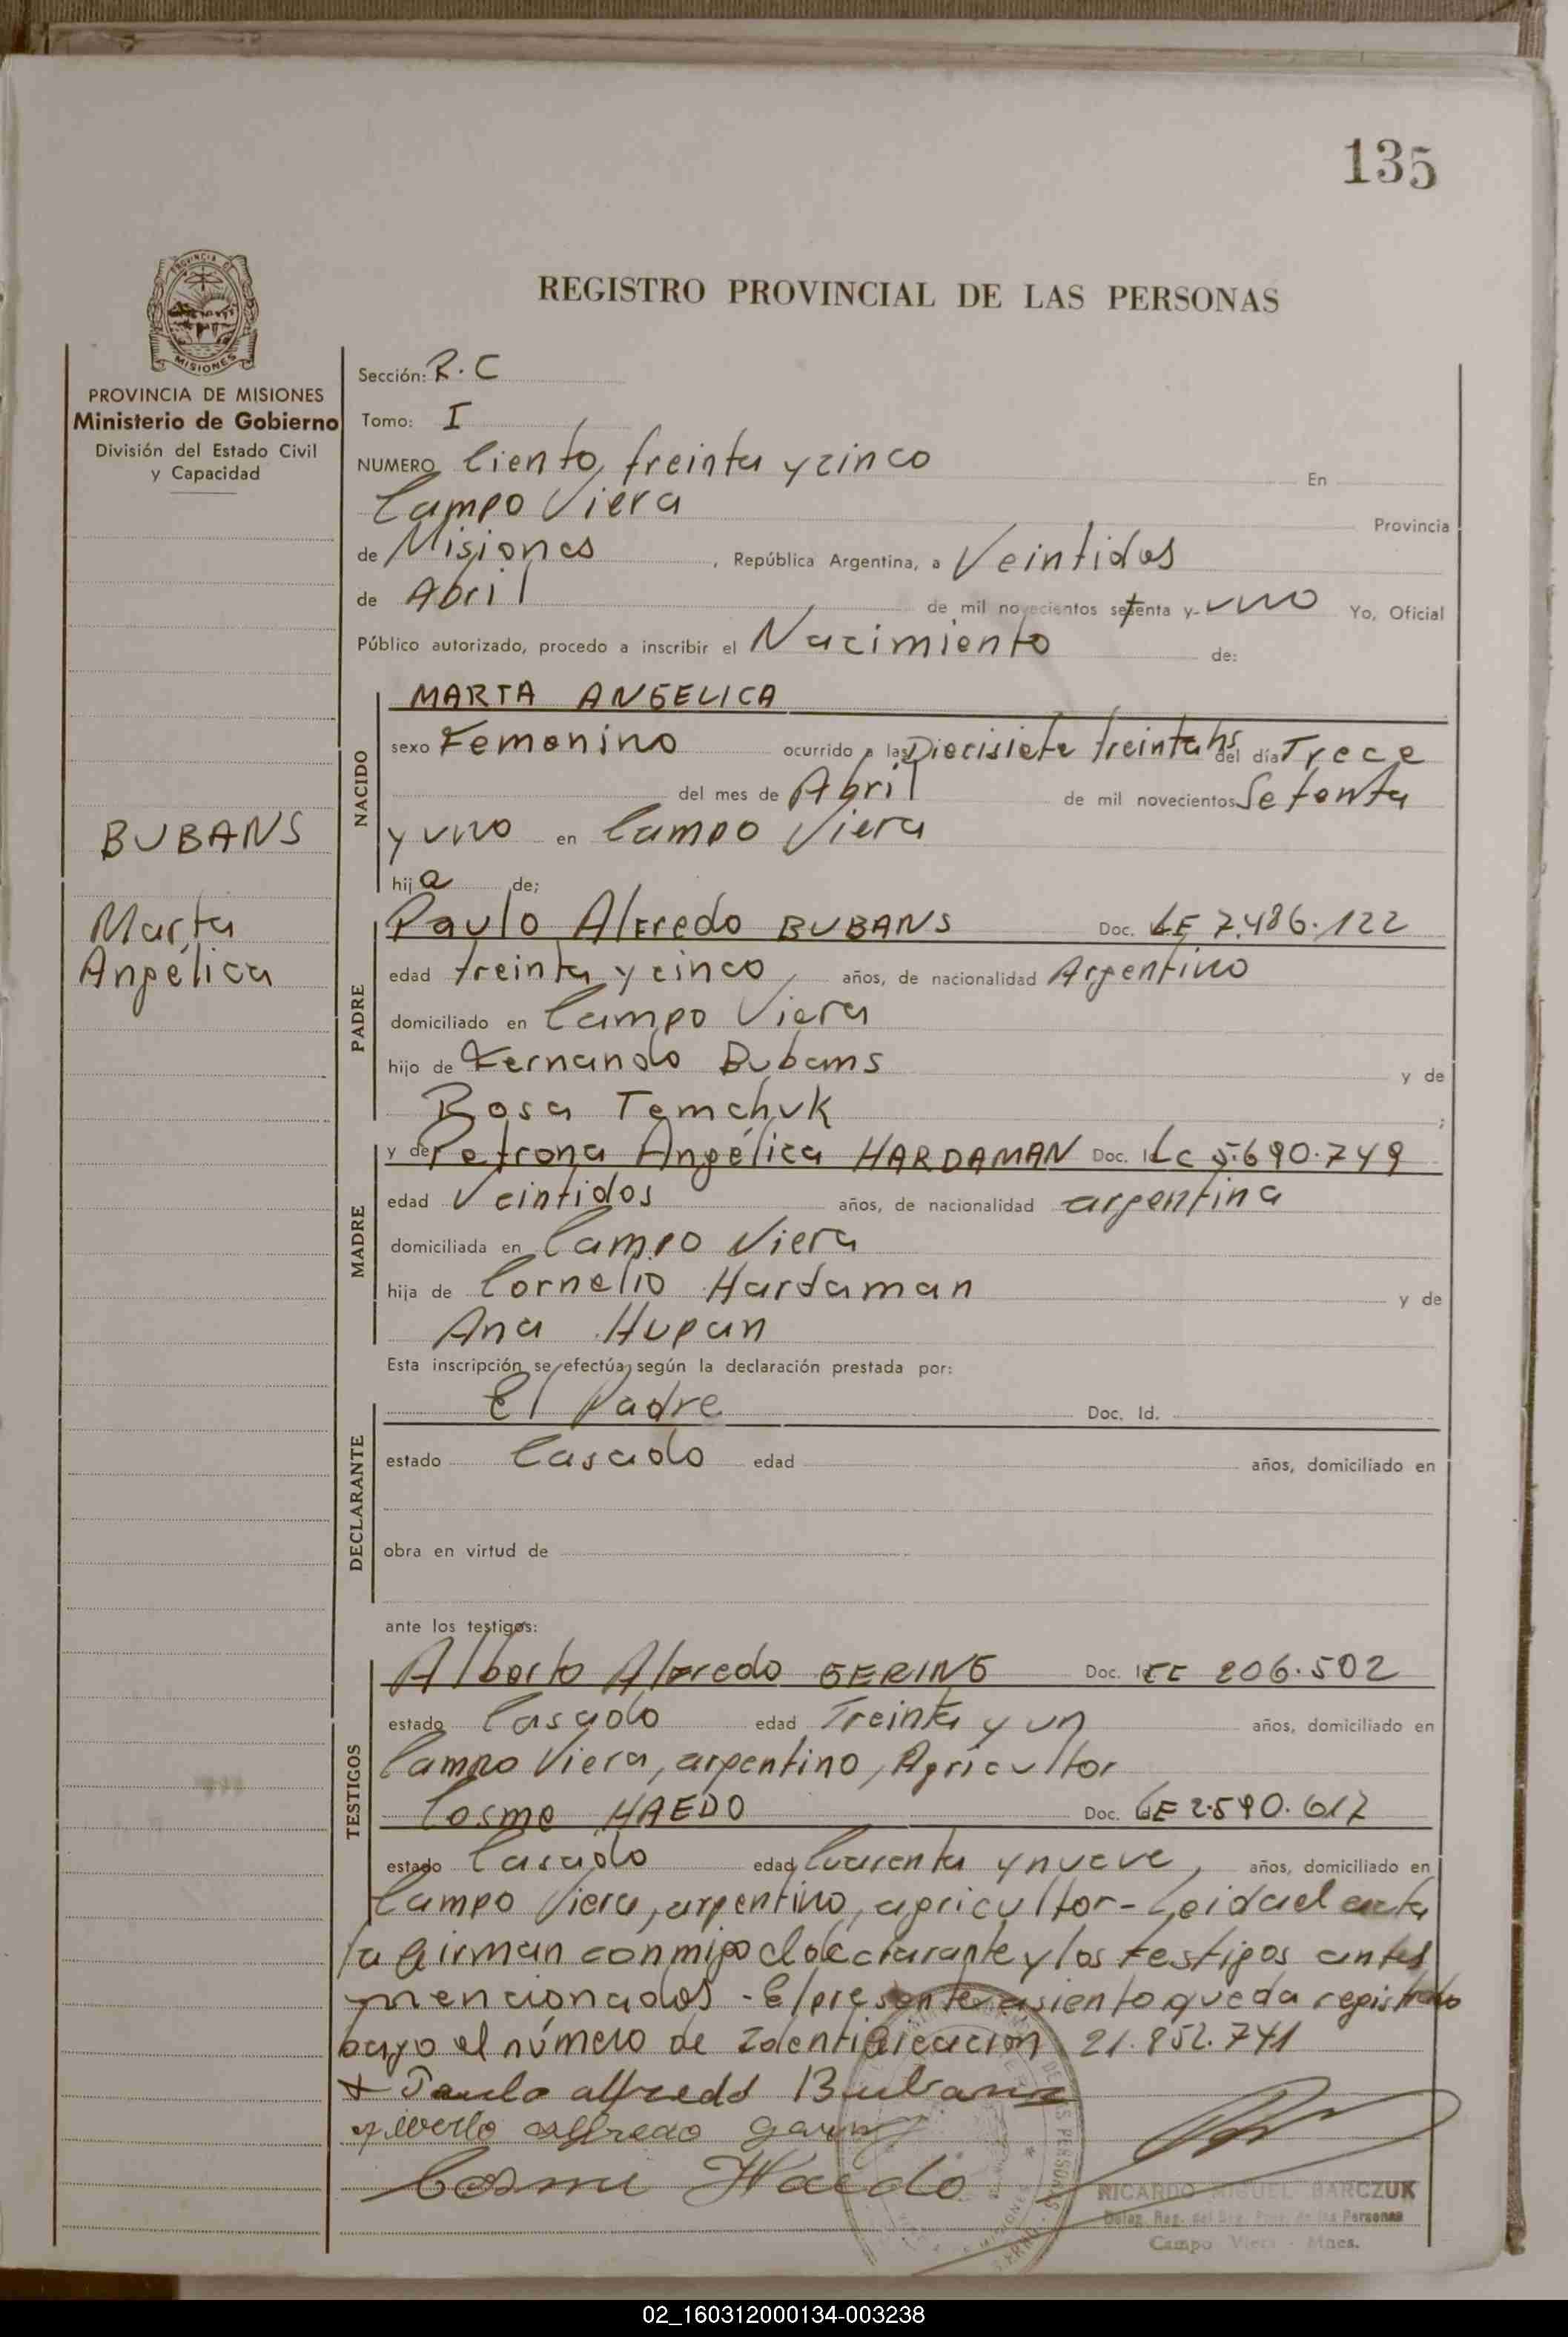 135
REGISTRO PROVINCIAL DE LAS PERSONAS
PROVINCIA DE MISIONES
Ministerio de Gobierno
División del Estado Civil
y Capacidad
BUBANS
Marta
Angélica
Sección: R.C
Tomo: I
NUMERO Ciento, treinta y cinco En
Campo Viera Provincia
de Misiones, República Argentina, a Veintidos
de Abril de mil novecientos setenta y- uno Yo, Oficial
Público autorizado, procedo a inscribir el Nacimiento de:
NACIDO
MARTA ANGELICA
sexo Femenino ocurrido a las Diecisiete treinta hs del día Trece
del mes de Abril de mil novecientos Setenta
y uno en Campo Viera
hija de;
PADRE
Paulo Alfredo BUBANS Doc. LE 7.486.122
edad treinta y cinco, años, de nacionalidad Argentino
domiciliado en Campo Viera
hijo de Fernando Bubans y de
Rosa Temchuk ;
MADRE
y de Petrona Angélica HARDAMAN Doc. LC 5.690.749
edad Veintidos años, de nacionalidad argentina
domiciliada en Campo Viera
hija de Cornelio Hardaman y de
Ana Hupan
Esta inscripción se efectúa según la declaración prestada por:
DECLARANTE
El Padre Doc. Id.
estado Casado edad años, domiciliado en
obra en virtud de
ante los testigos:
TESTIGOS
Alberto Alfredo GERING Doc. 206.502
estado Casado edad Treinta y un años, domiciliado en
Campo Viera, argentino, Agricultor
Cosme HAEDO Doc. LE 2.590.617
estado Casado edad Cuarenta y nueve, años, domiciliado en
Campo Viera, argentino, agricultor - Leida el acta
la firman conmigo el declarante y los testigos antes
mencionados - El presente asiento queda registrado
bajo el número de Identificación 21.852.741
Paulo alfredo Bubans
alfredo
Cosme Haedo
RICARDO MIGUEL BARCZUK
Deleg. Reg. del Reg. Prov. de las Personas
Campo Viera - Mnes.
02_160312000134-003238